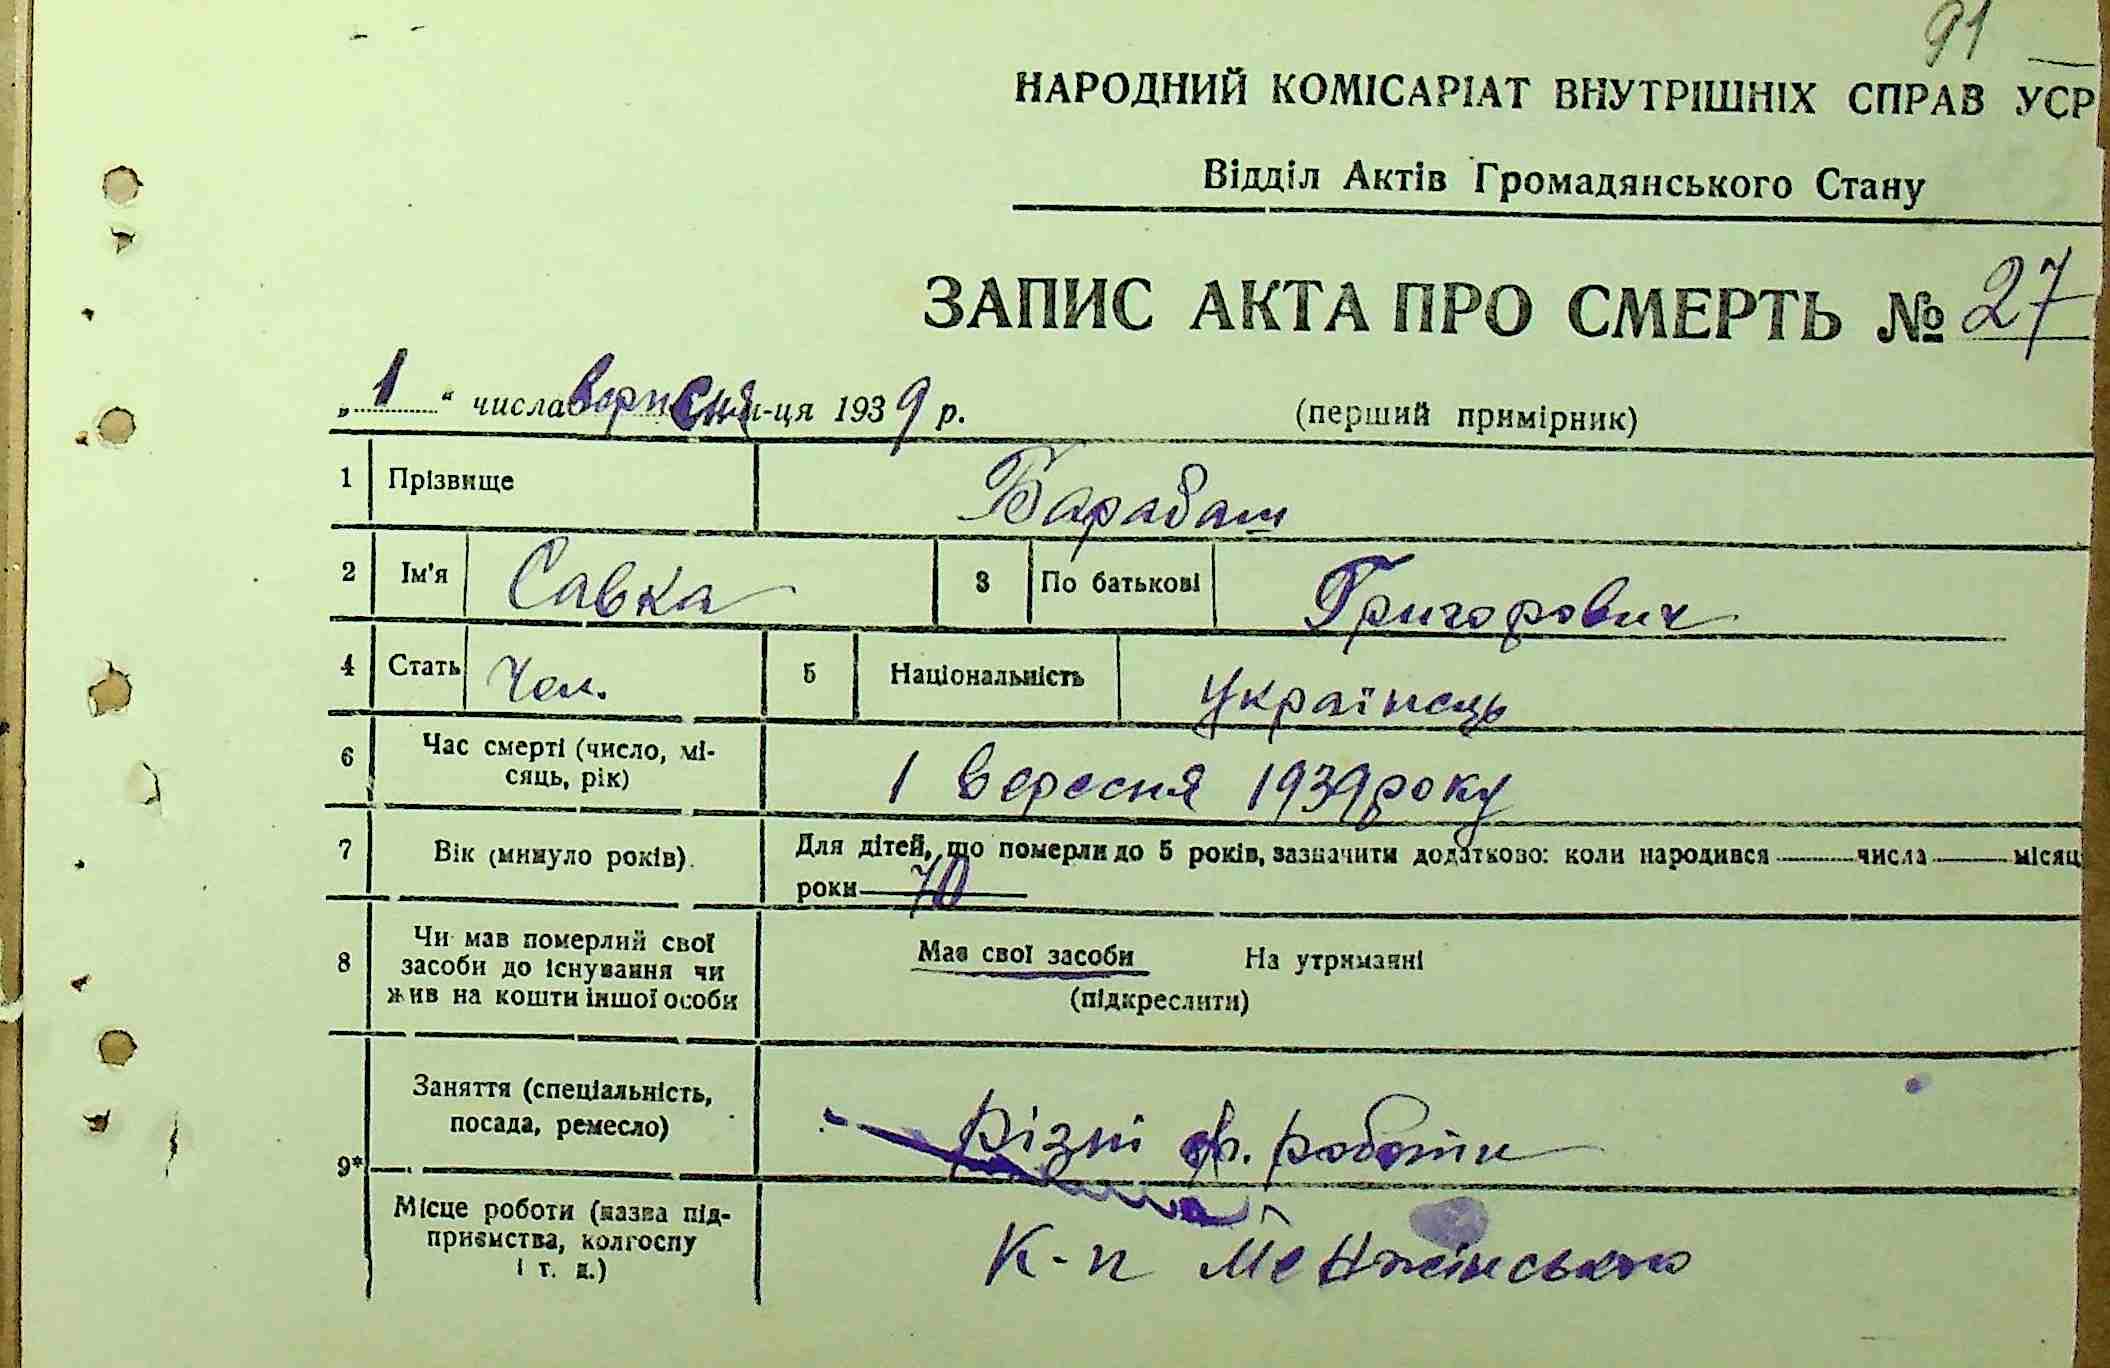 91
НАРОДНИЙ КОМІСАРІАТ ВНУТРІШНІХ СПРАВ УСР
Відділ Актів Громадянського Стану
ЗАПИС АКТА ПРО СМЕРТЬ № 27
„1“ числа вересня м-ця 1939 р. (перший примірник)
1 Прізвище Барабаш
2 Ім'я Савка 3 По батькові Григорович
4 Стать Чол. 5 Національність Українець
6 Час смерті (число, мі-
сяць, рік) 1 вересня 1939 року
7 Вік (минуло років). Для дітей, що померли до 5 років, зазначити додатково: коли народився числа місяц
роки 70
8 Чи мав померлий свої
засоби до існування чи
жив на кошти іншої особи
Мав свої засоби На утриманні
(підкреслити)
9* Заняття (спеціальність,
посада, ремесло) різні роботи
Місце роботи (назва під-
приємства, колгоспу
і т. д.) К-п Менжінського